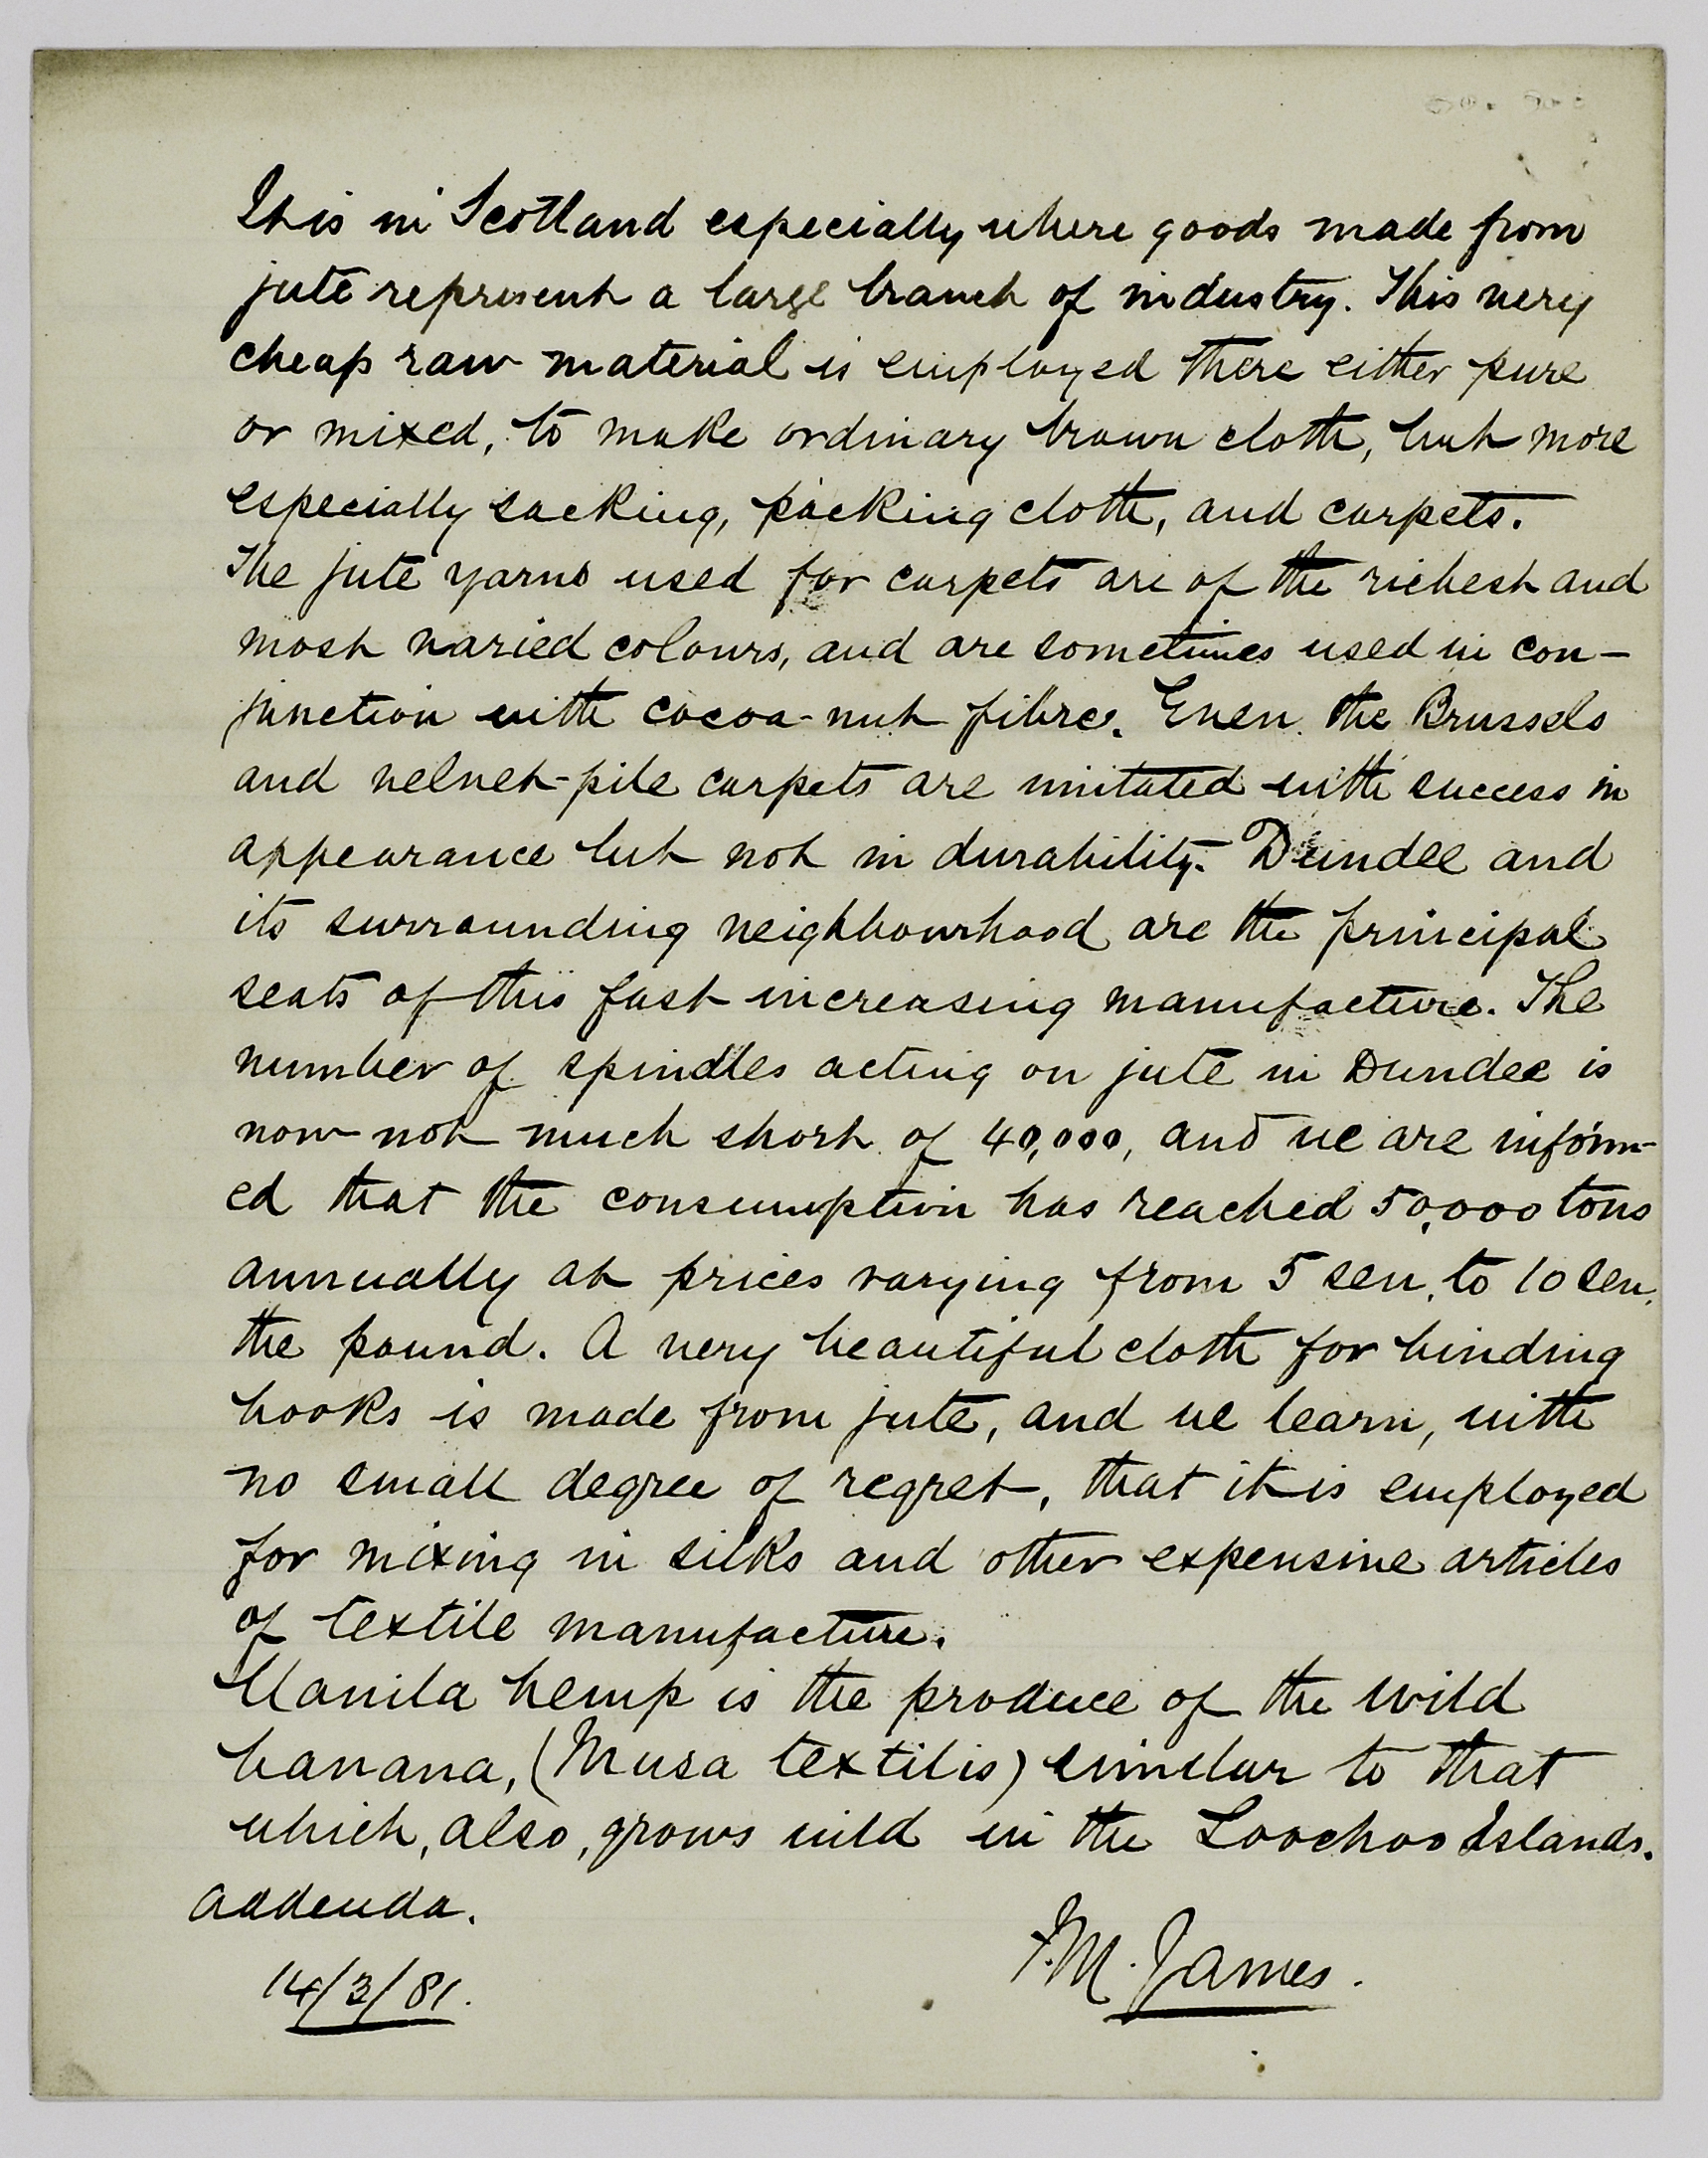 It is in Scotland especially where goods made from
jute represent a large branch of industry. This very
cheap raw material is employed there either pure
or mixed, to make ordinary brown cloth, but more
especially sacking, packing cloth, and carpets.
The jute yarns used for carpets are of the richest and
most varied colours, and are sometimes used in con-
junction with cocoa-nut fibre. Even the Brussels
and velvet-pile carpets are imitated with success in
appearance but not in durability. Dundee and
its surrounding neighbourhood are the principal
seats of this fast increasing manufacture. The
number of spindles acting on jute in Dundee is
now not much short of 40,000, and we are inform-
ed that the consumption has reached 50,000 tons
annually at prices varying from 5 sen. to 10 sen.
the pound. A very beautiful cloth for binding
books is made from jute, and we learn, with
no small degree of regret, that it is employed
for mixing in silks and other expensive articles
of textile manufacture.
Manila hemp is the produce of the wild
banana, (Musa textilis) similar to that
which, also, grows wild in the Loochoo Islands.
Addenda.
F.M. James.
14/3/81.